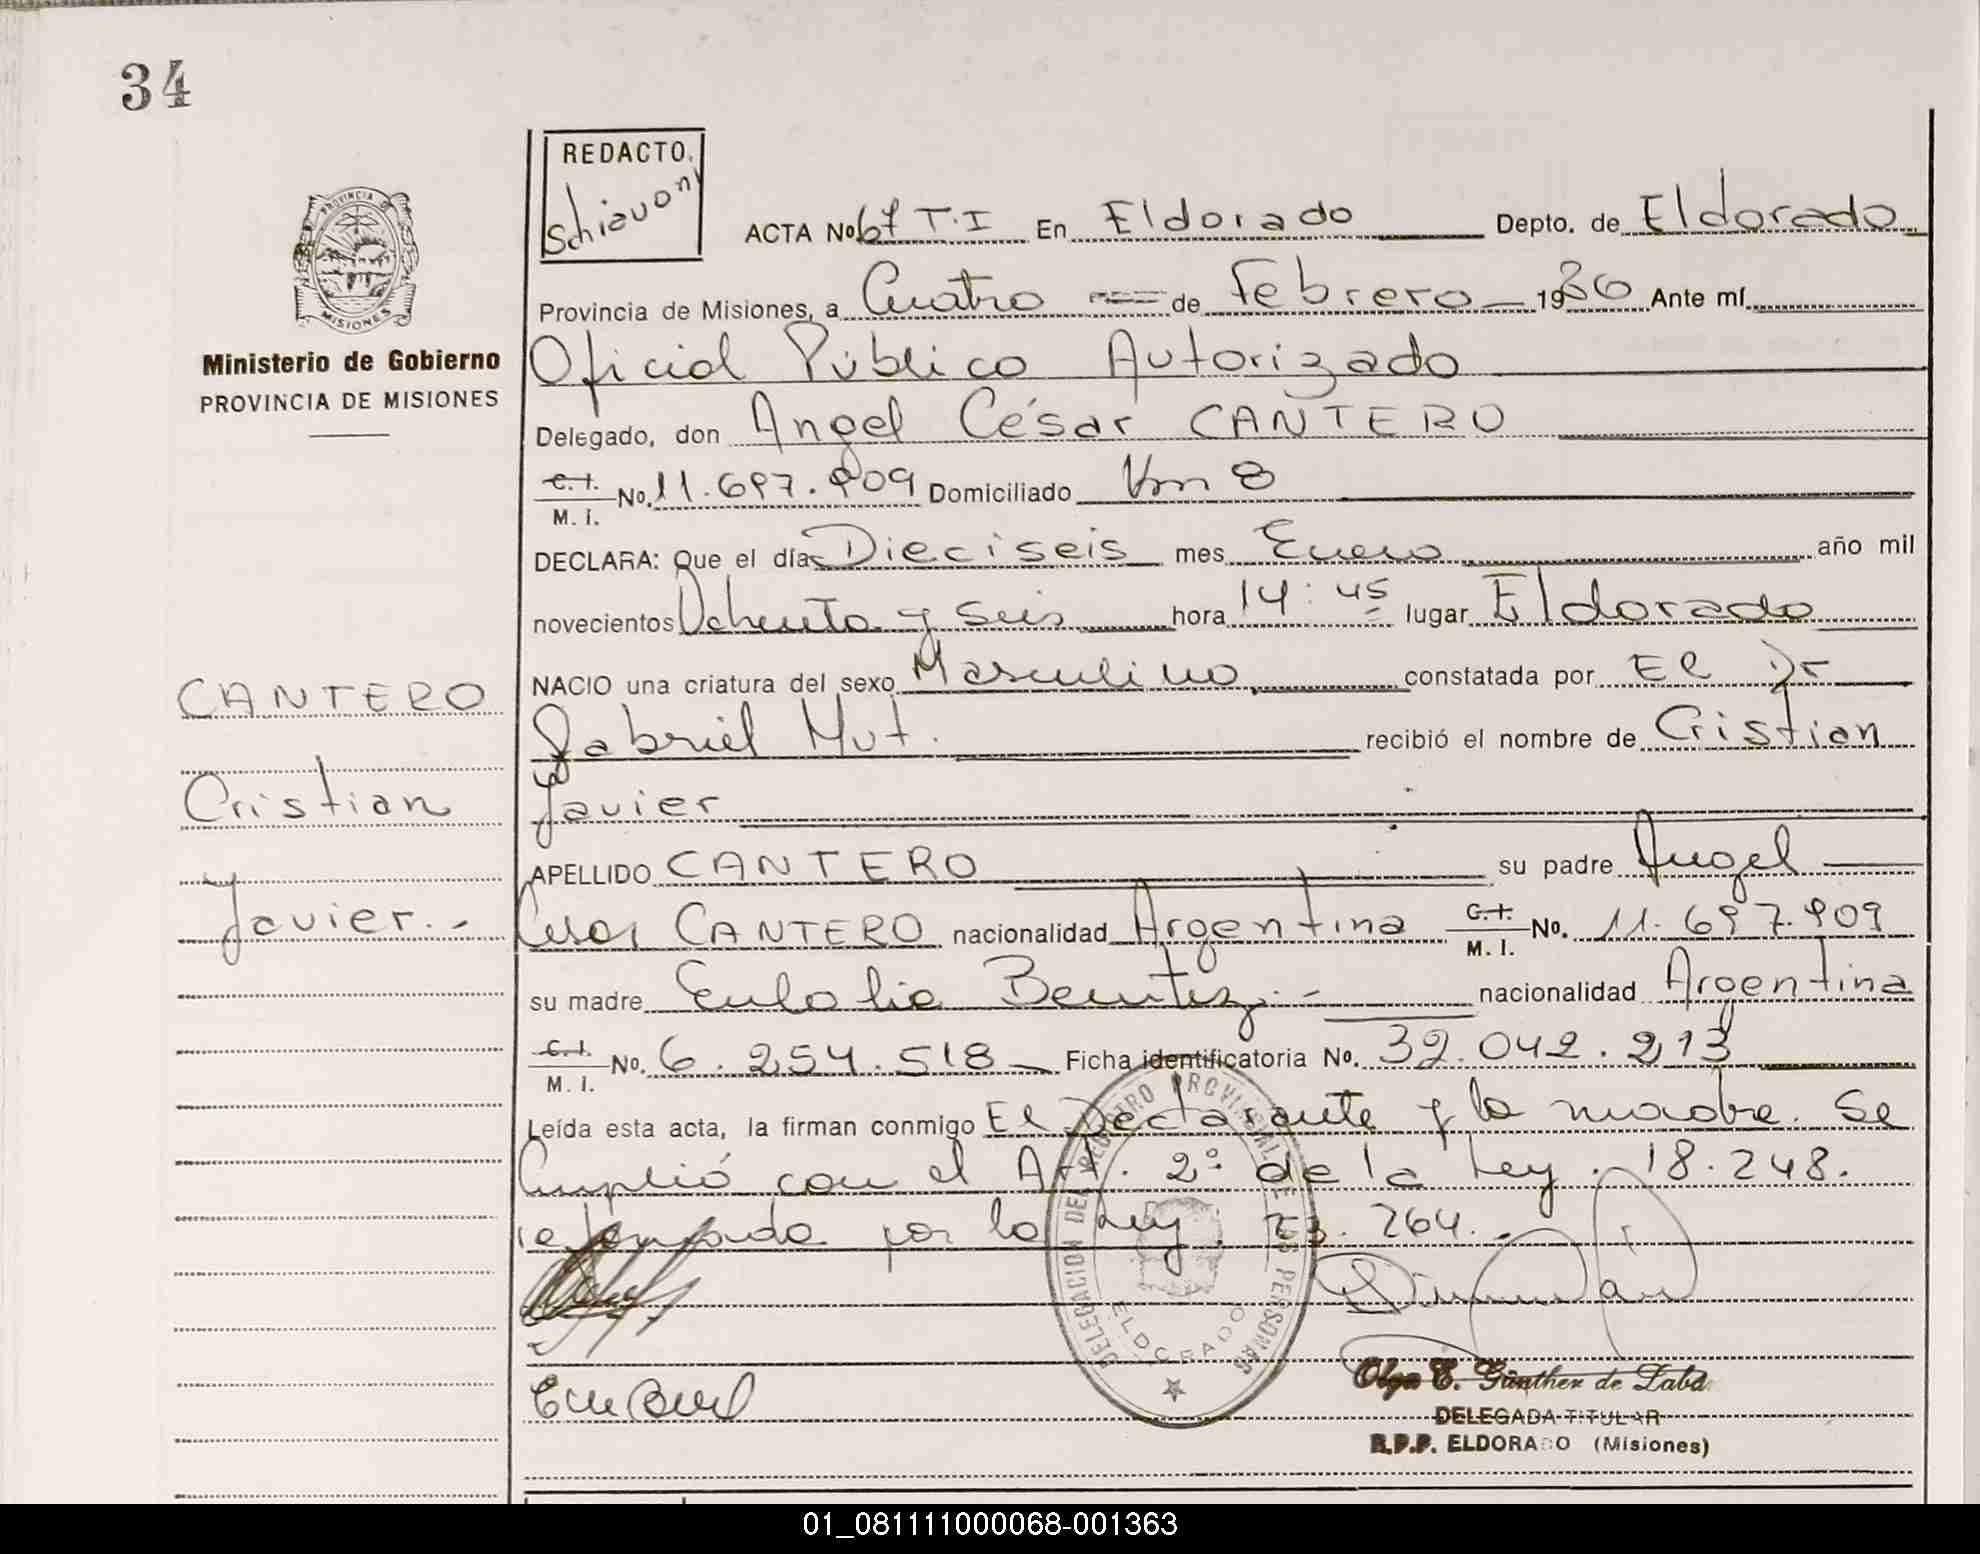 34
REDACTO.
Schiavoni
PROVINCIA D
MISIONES
Ministerio de Gobierno
PROVINCIA DE MISIONES
ACTA No 67 T.I En Eldorado Depto. de Eldorado
Provincia de Misiones, a Cuatro de Febrero 1986 Ante mí
Oficial Público Autorizado
Delegado, don Angel César CANTERO
C.I. M. I. No. 11.697.909 Domiciliado Km 8
DECLARA: Que el día Dieciseis mes Enero año mil
novecientos Ochenta y seis hora 14:45 lugar Eldorado
NACIO una criatura del sexo Masculino constatada por El Dr
Gabriel Mut. recibió el nombre de Cristian
Javier
APELLIDO CANTERO su padre Angel
Cesar CANTERO nacionalidad Argentina C.I. M. I. No. 11.697.909
su madre Eulalia Benitez.- nacionalidad Argentina
C.I. M. I. No. 6.254.518 Ficha identificatoria No. 32.042.213
Leída esta acta, la firman conmigo El Declarante y la madre. Se
Cumplió con el Art. 2° de la Ley. 18.248.
reformada por la Ley. 23.264.-
CANTERO
Cristian
Javier.-
DELEGACION DEL REGISTRO PROVINCIAL DE LAS PERSONAS
ELDORADO
Olga T. Günther de Labd
DELEGADA TITULAR
R.P.P. ELDORADO (Misiones)
01_081111000068-001363